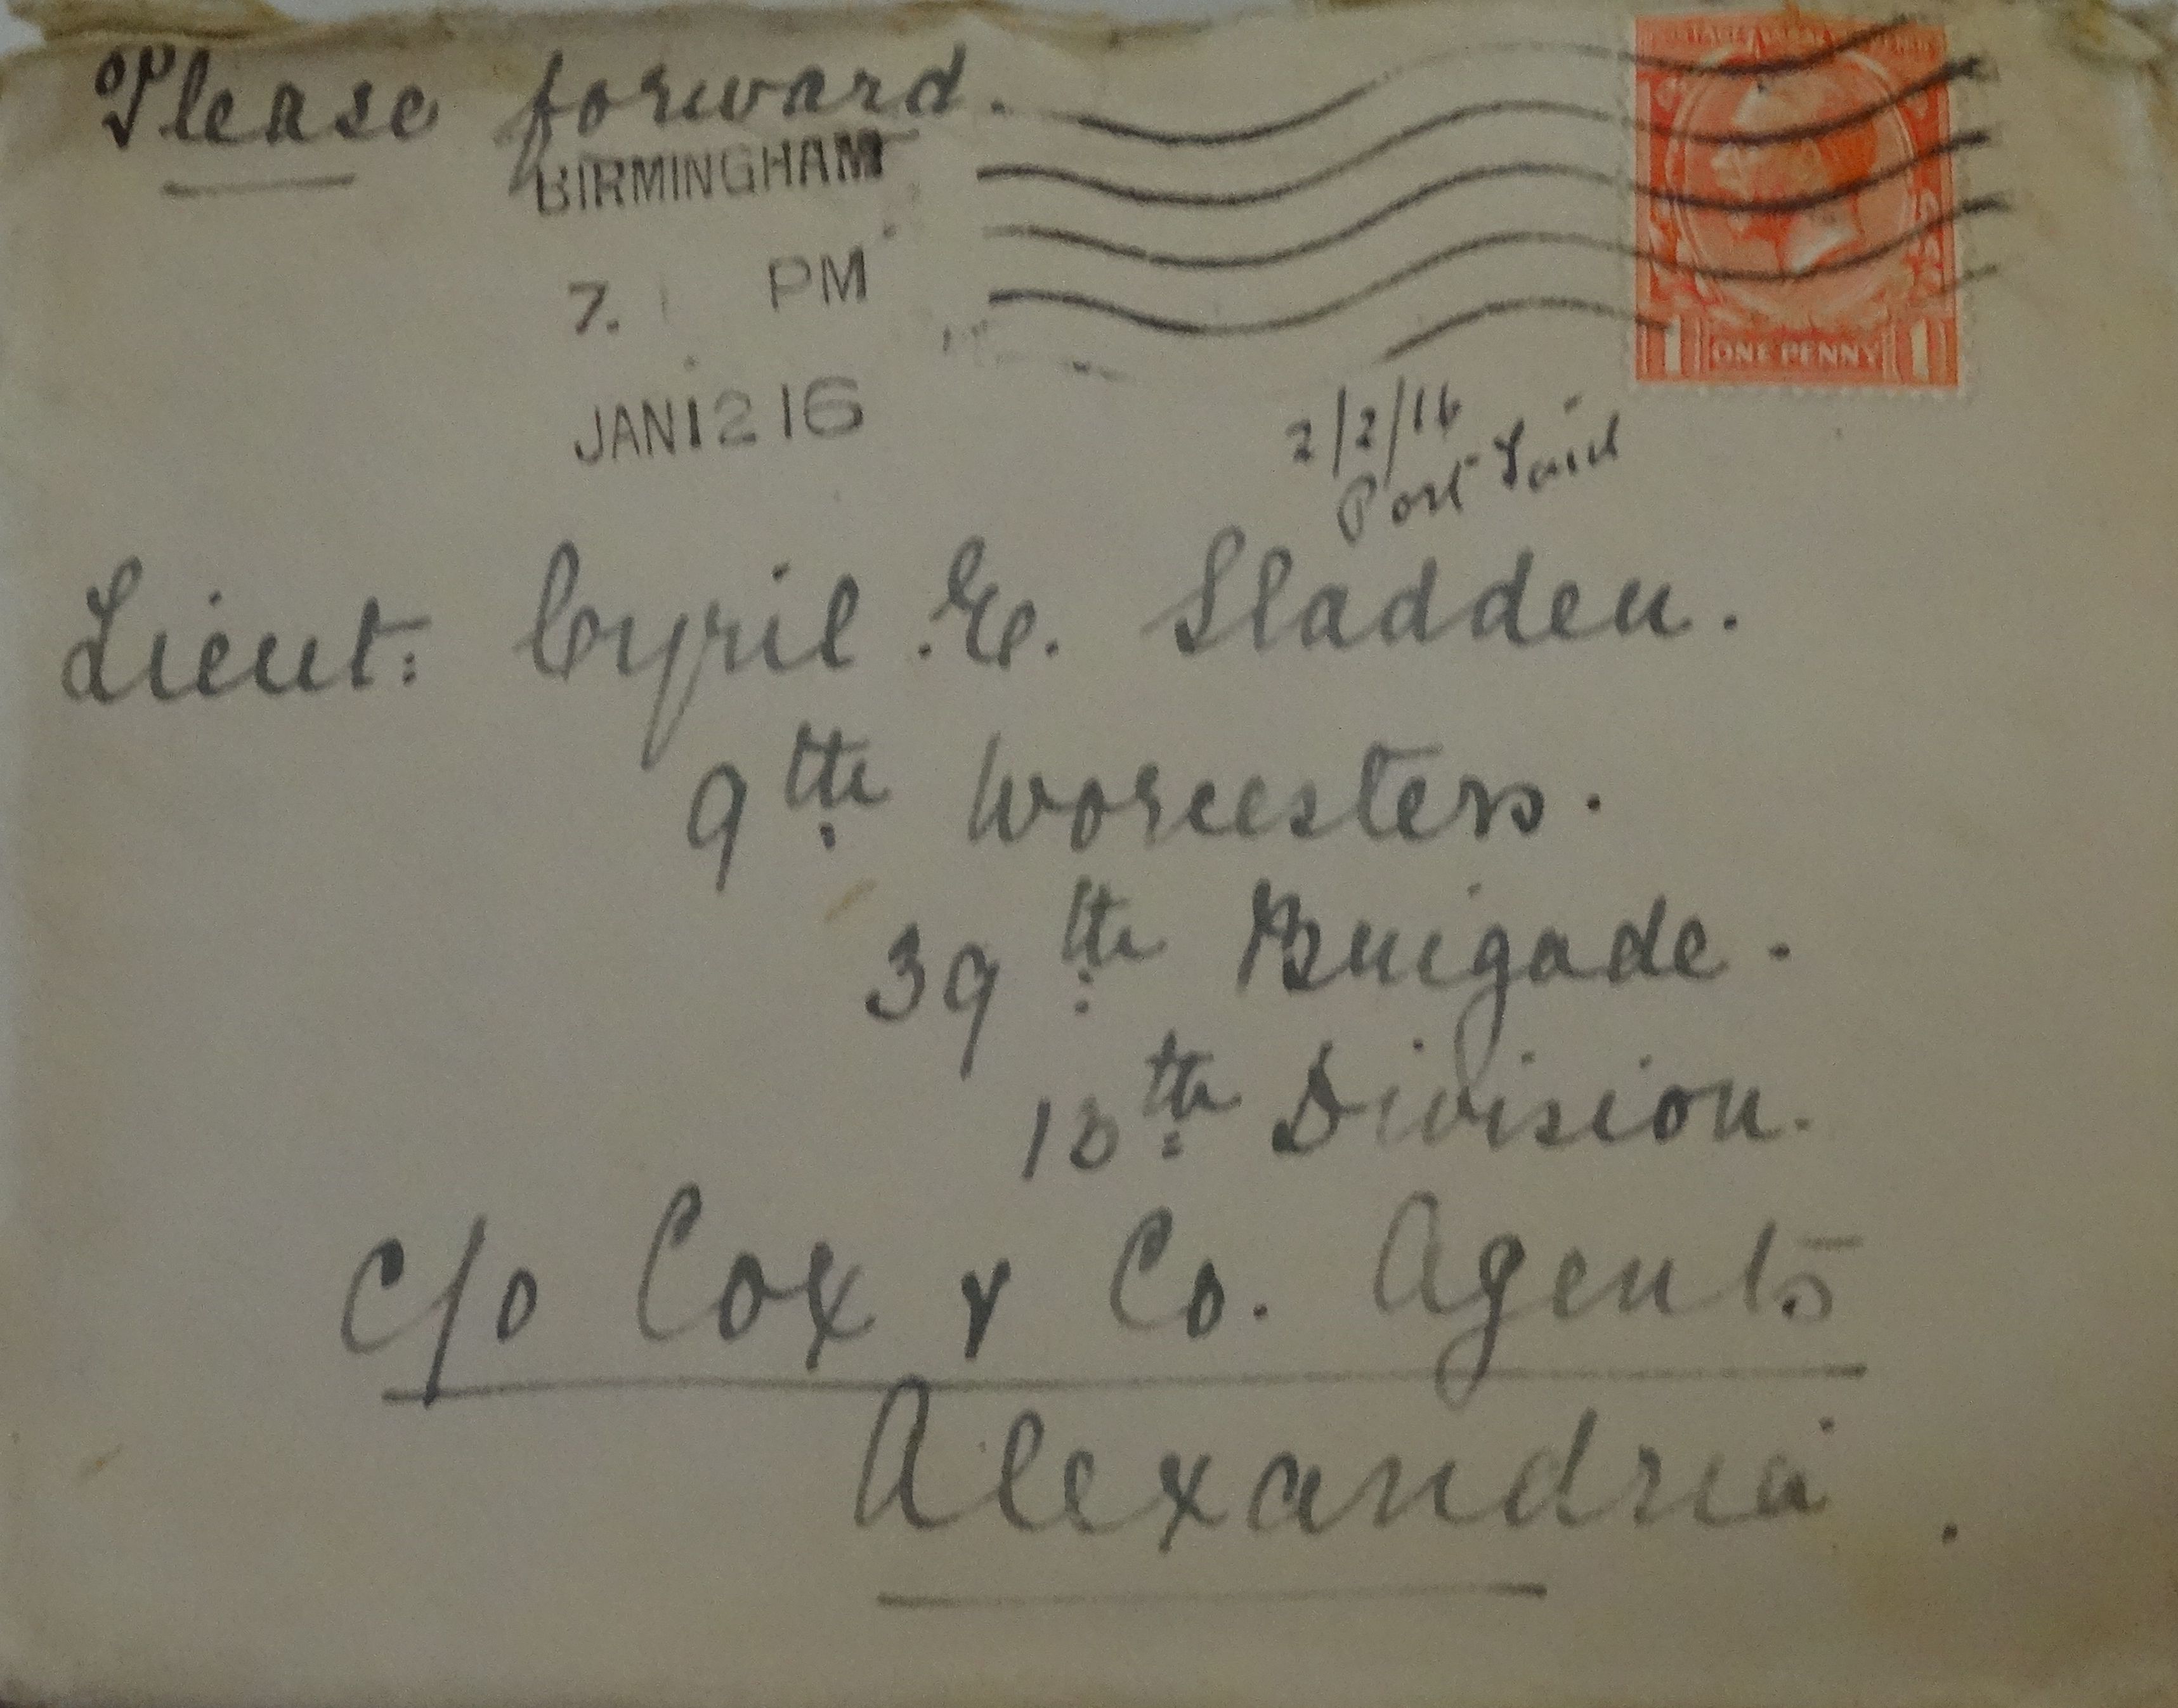 Please forward.
BIRMINGHAM
7. PM
JAN 12 16
1 ONE PENNY 1
2/2/16
Port Said
Lieut: Cyril .E. Sladden.
9th Worcesters.
39th Brigade.
13th Division.
c/o Cox & Co. Agents
Alexandria.